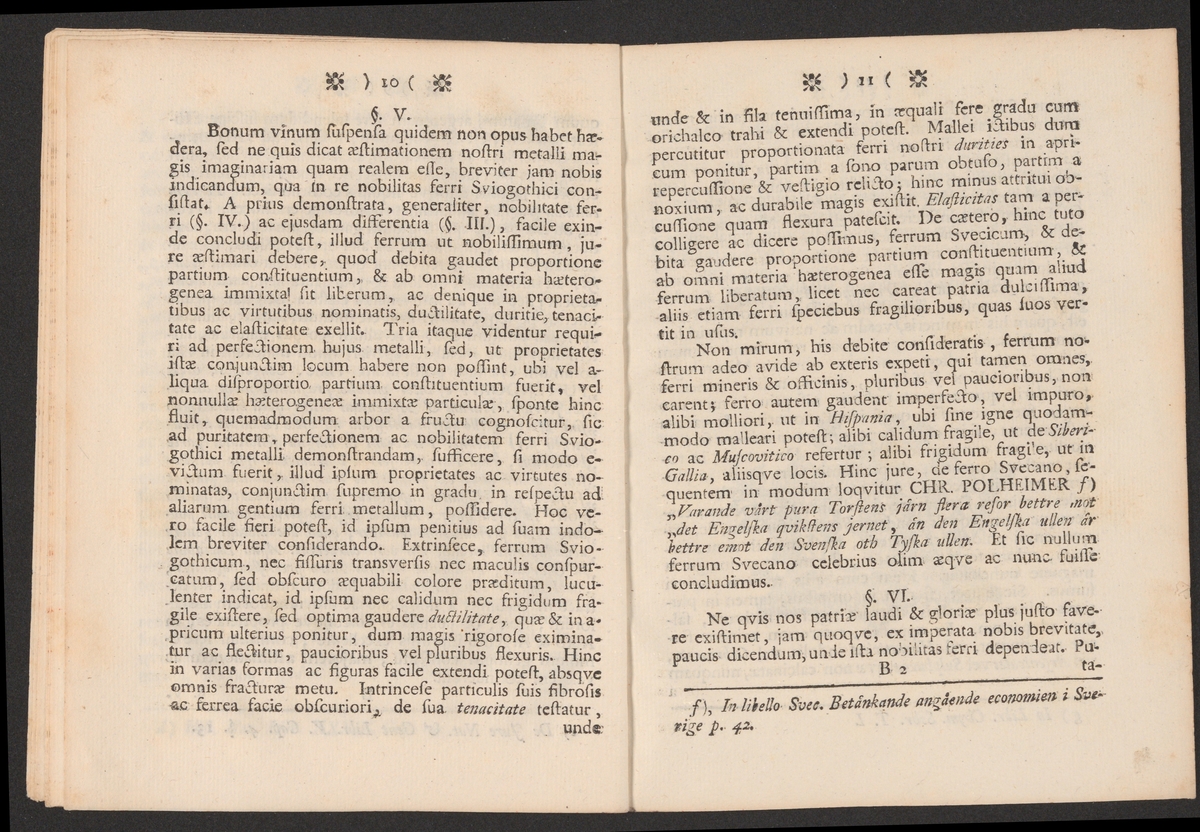 ) 10 (
§. V.
Bonum vinum ſuſpenſa quidem non opus habet hæ-
dera, ſed ne quis dicat æſtimationem noſtri metalli ma-
gis imaginariam quam realem eſſe, breviter jam nobis
indicandum, qua in re nobilitas ferri Sviogothici con-
ſiſtat. A prius demonſtrata, generaliter, nobilitate fer-
ri (§. IV.) ac ejusdam differentia (§. III.), facile exin-
de concludi poteſt, illud ferrum ut nobiliſſimum, ju-
re æſtimari debere, quod debita gaudet proportione
partium conſtituentium, & ab omni materia hætero-
genea immixta ſit liberum, ac denique in proprieta-
tibus ac virtutibus nominatis, ductilitate, duritie, tenaci-
tate ac elaſticitate exellit. Tria itaque videntur requi-
ri ad perfectionem hujus metalli, ſed, ut proprietates
iſtæ conjunctim locum habere non poſſint, ubi vel a-
liqua diſproportio partium conſtituentium fuerit, vel
nonnullæ hæterogeneæ immixtæ particulæ, ſponte hinc
fluit, quemadmodum arbor a fructu cognoſcitur, ſic
ad puritatem, perfectionem ac nobilitatem ferri Svio-
gothici metalli demonſtrandam, ſufficere, ſi modo e-
victum fuerit, illud ipſum proprietates ac virtutes no-
minatas, conjunctim ſupremo in gradu in reſpectu ad
aliarum gentium ferri metallum, poſſidere. Hoc ve-
ro facile fieri poteſt, id ipſum penitius ad ſuam indo-
lem breviter conſiderando. Extrinſece, ferrum Svio-
gothicum, nec fiſſuris transverſis nec maculis conſpur-
catum, ſed obſcuro æquabili colore præditum, lucu-
lenter indicat, id ipſum nec calidum nec frigidum fra-
gile exiſtere, ſed optima gaudere ductilitate, quæ & in a-
pricum ulterius ponitur, dum magis rigoroſe eximina-
tur ac flectitur, paucioribus vel pluribus flexuris. Hinc
in varias formas ac figuras facile extendi poteſt, absqve
omnis fracturæ metu. Intrinceſe particulis ſuis fibroſis
ac ferrea facie obſcuriori, de ſua tenacitate teſtatur,
unde
) 11 (
unde & in fila tenuiſſima, in æquali fere gradu cum
orichalco trahi & extendi poteſt. Mallei ictibus dum
percutitur proportionata ferri noſtri durities in apri-
cum ponitur, partim a ſono parum obtuſo, partim a
repercuſſione & veſtigio relicto; hinc minus attritui ob-
noxium, ac durabile magis exiſtit. Elaſticitas tam a per-
cuſſione quam flexura pateſcit. De cætero, hinc tuto
colligere ac dicere poſſimus, ferrum Svecicum, & de-
bita gaudere proportione partium conſtituentium, &
ab omni materia hæterogenea eſſe magis quam aliud
ferrum liberatum, licet nec careat patria dulciſſima,
aliis etiam ferri ſpeciebus fragilioribus, quas ſuos ver-
tit in uſus.
Non mirum, his debite conſideratis, ferrum no-
ſtrum adeo avide ab exteris expeti, qui tamen omnes,
ferri mineris & officinis, pluribus vel paucioribus, non
carent; ferro autem gaudent imperfecto, vel impuro,
alibi molliori, ut in Hiſpania, ubi ſine igne quodam-
modo malleari poteſt; alibi calidum fragile, ut de Siberi-
co ac Muſcovitico refertur; alibi frigidum fragile, ut in
Gallia, aliisqve locis. Hinc jure, de ferro Svecano, ſe-
quentem in modum loqvitur CHR. POLHEIMER f)
„Varande vårt pura Torſtens järn flera reſor bettre mot
„det Engelſka qvikſtens jernet, än den Engelſka ullen är
bettre emot den Svenſka oth Tyſka ullen. Et ſic nullum
ferrum Svecano celebrius olim æqve ac nunc fuiſſe
concludimus.
§. VI.
Ne qvis nos patriæ laudi & gloriæ plus juſto fave-
re exiſtimet, jam quoqve, ex imperata nobis brevitate,
paucis dicendum, unde iſta nobilitas ferri dependeat. Pu-
B 2 ta-
f), In libello Svec. Betänkande angående economien i Sve-
rige p. 42.